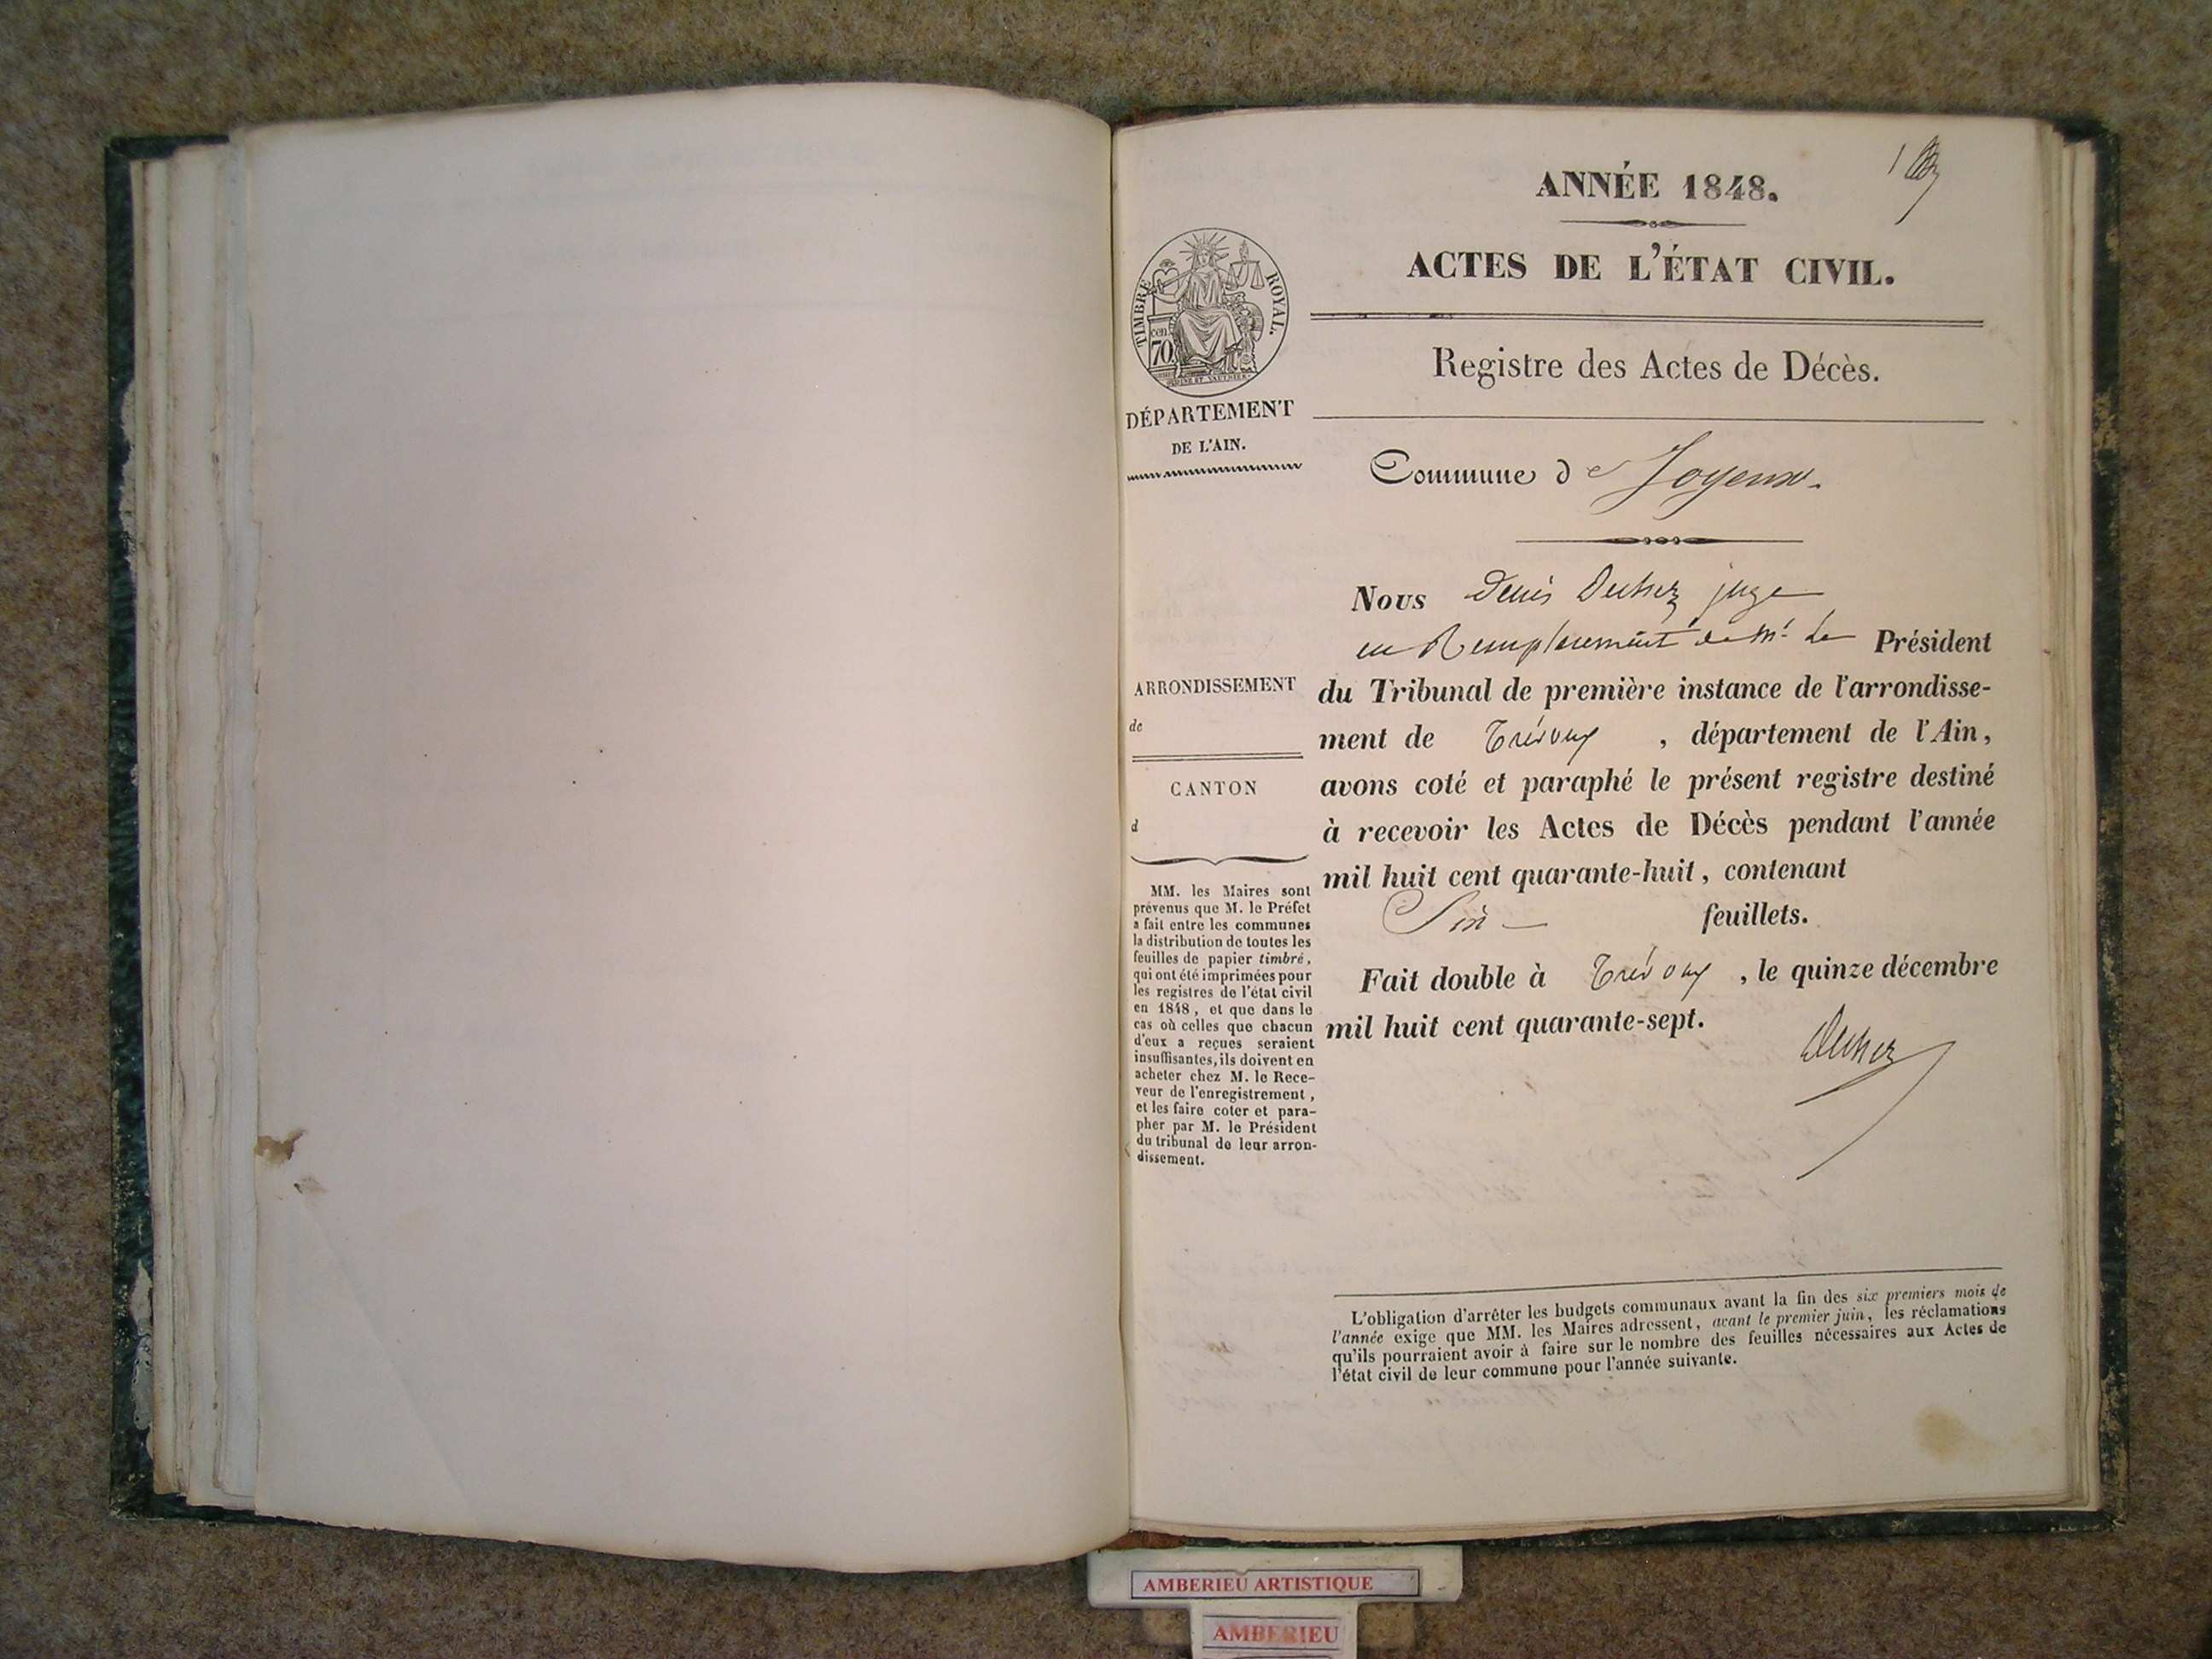 ANNÉE 1848.
1
ACTES DE L'ÉTAT CIVIL.
TIMBRE ROYAL.
cen 70
Registre des Actes de Décès.
DÉPARTEMENT
DE L'AIN.
Commune de Joyeux.
Nous Denis juge
en Remplacement de Mr. Le Président
du Tribunal de première instance de l'arrondisse-
ment de Trévoux, département de l'Ain,
avons coté et paraphé le présent registre destiné
à recevoir les Actes de Décès pendant l'année
mil huit cent quarante-huit, contenant
Six feuillets.
Fait double à Trévoux, le quinze décembre
mil huit cent quarante-sept.
ARRONDISSEMENT
de
CANTON
d
MM. les Maires sont
prévenus que M. le Préfet
a fait entre les communes
la distribution de toutes les
feuilles de papier timbré,
qui ont été imprimées pour
les registres de l'état civil
en 1848, et que dans le
cas où celles que chacun
d'eux a reçues seraient
insuffisantes, ils doivent en
acheter chez M. le Rece-
veur de l'enregistrement,
et les faire coter et para-
pher par M. le Président
du tribunal de leur arron-
dissement.
L'obligation d'arrêter les budgets communaux avant la fin des six premiers mois de
l'année exige que MM. les Maires adressent, avant le premier juin, les réclamations
qu'ils pourraient avoir à faire sur le nombre des feuilles nécessaires aux Actes de
l'état civil de leur commune pour l'année suivante.
AMBERIEU ARTISTIQUE
AMBERIEU